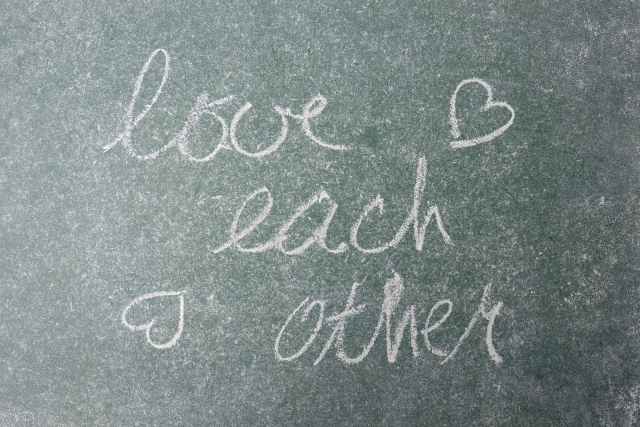 love
each
other